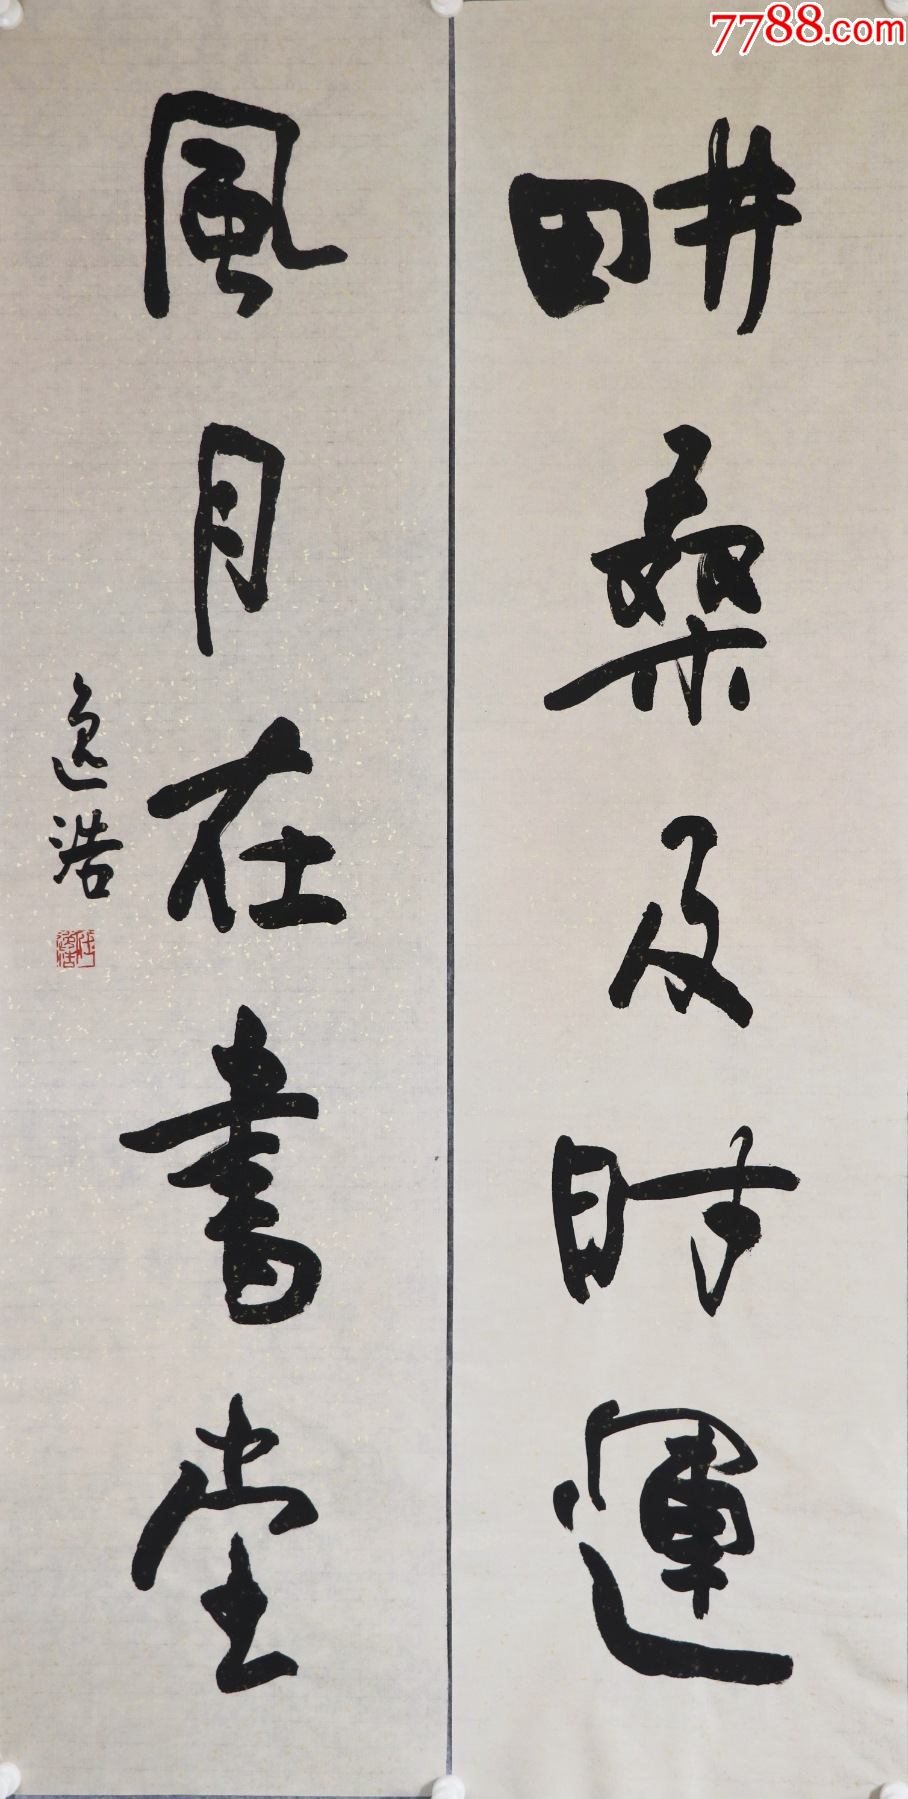 7788.com
畊桑及时運
風月在書堂
逸浩